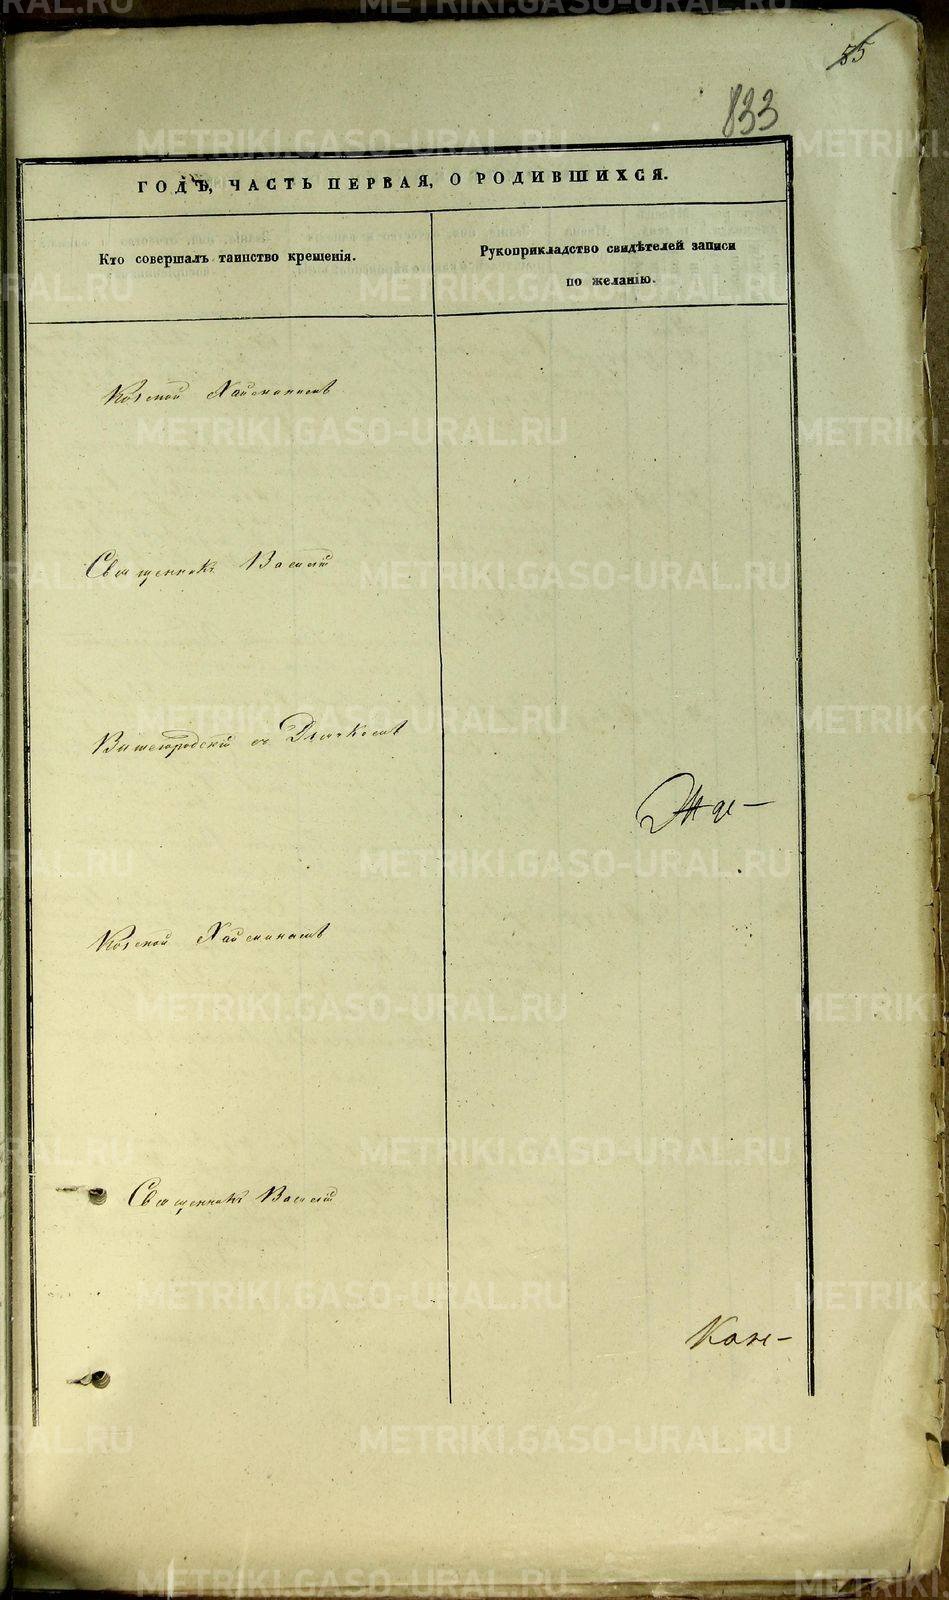 55
833
ГОДЪ, ЧАСТЬ ПЕРВАЯ, О РОДИВШИХСЯ.
Кто совершалъ таинство крещенія.
Рукоприкладство свидѣтелей записи
по желанію.
Козмой
Священникъ Василій
Вышегородскій съ Дьячкомъ
Козмой
Священникъ Василій
METRIKI.GASO-URAL.RU